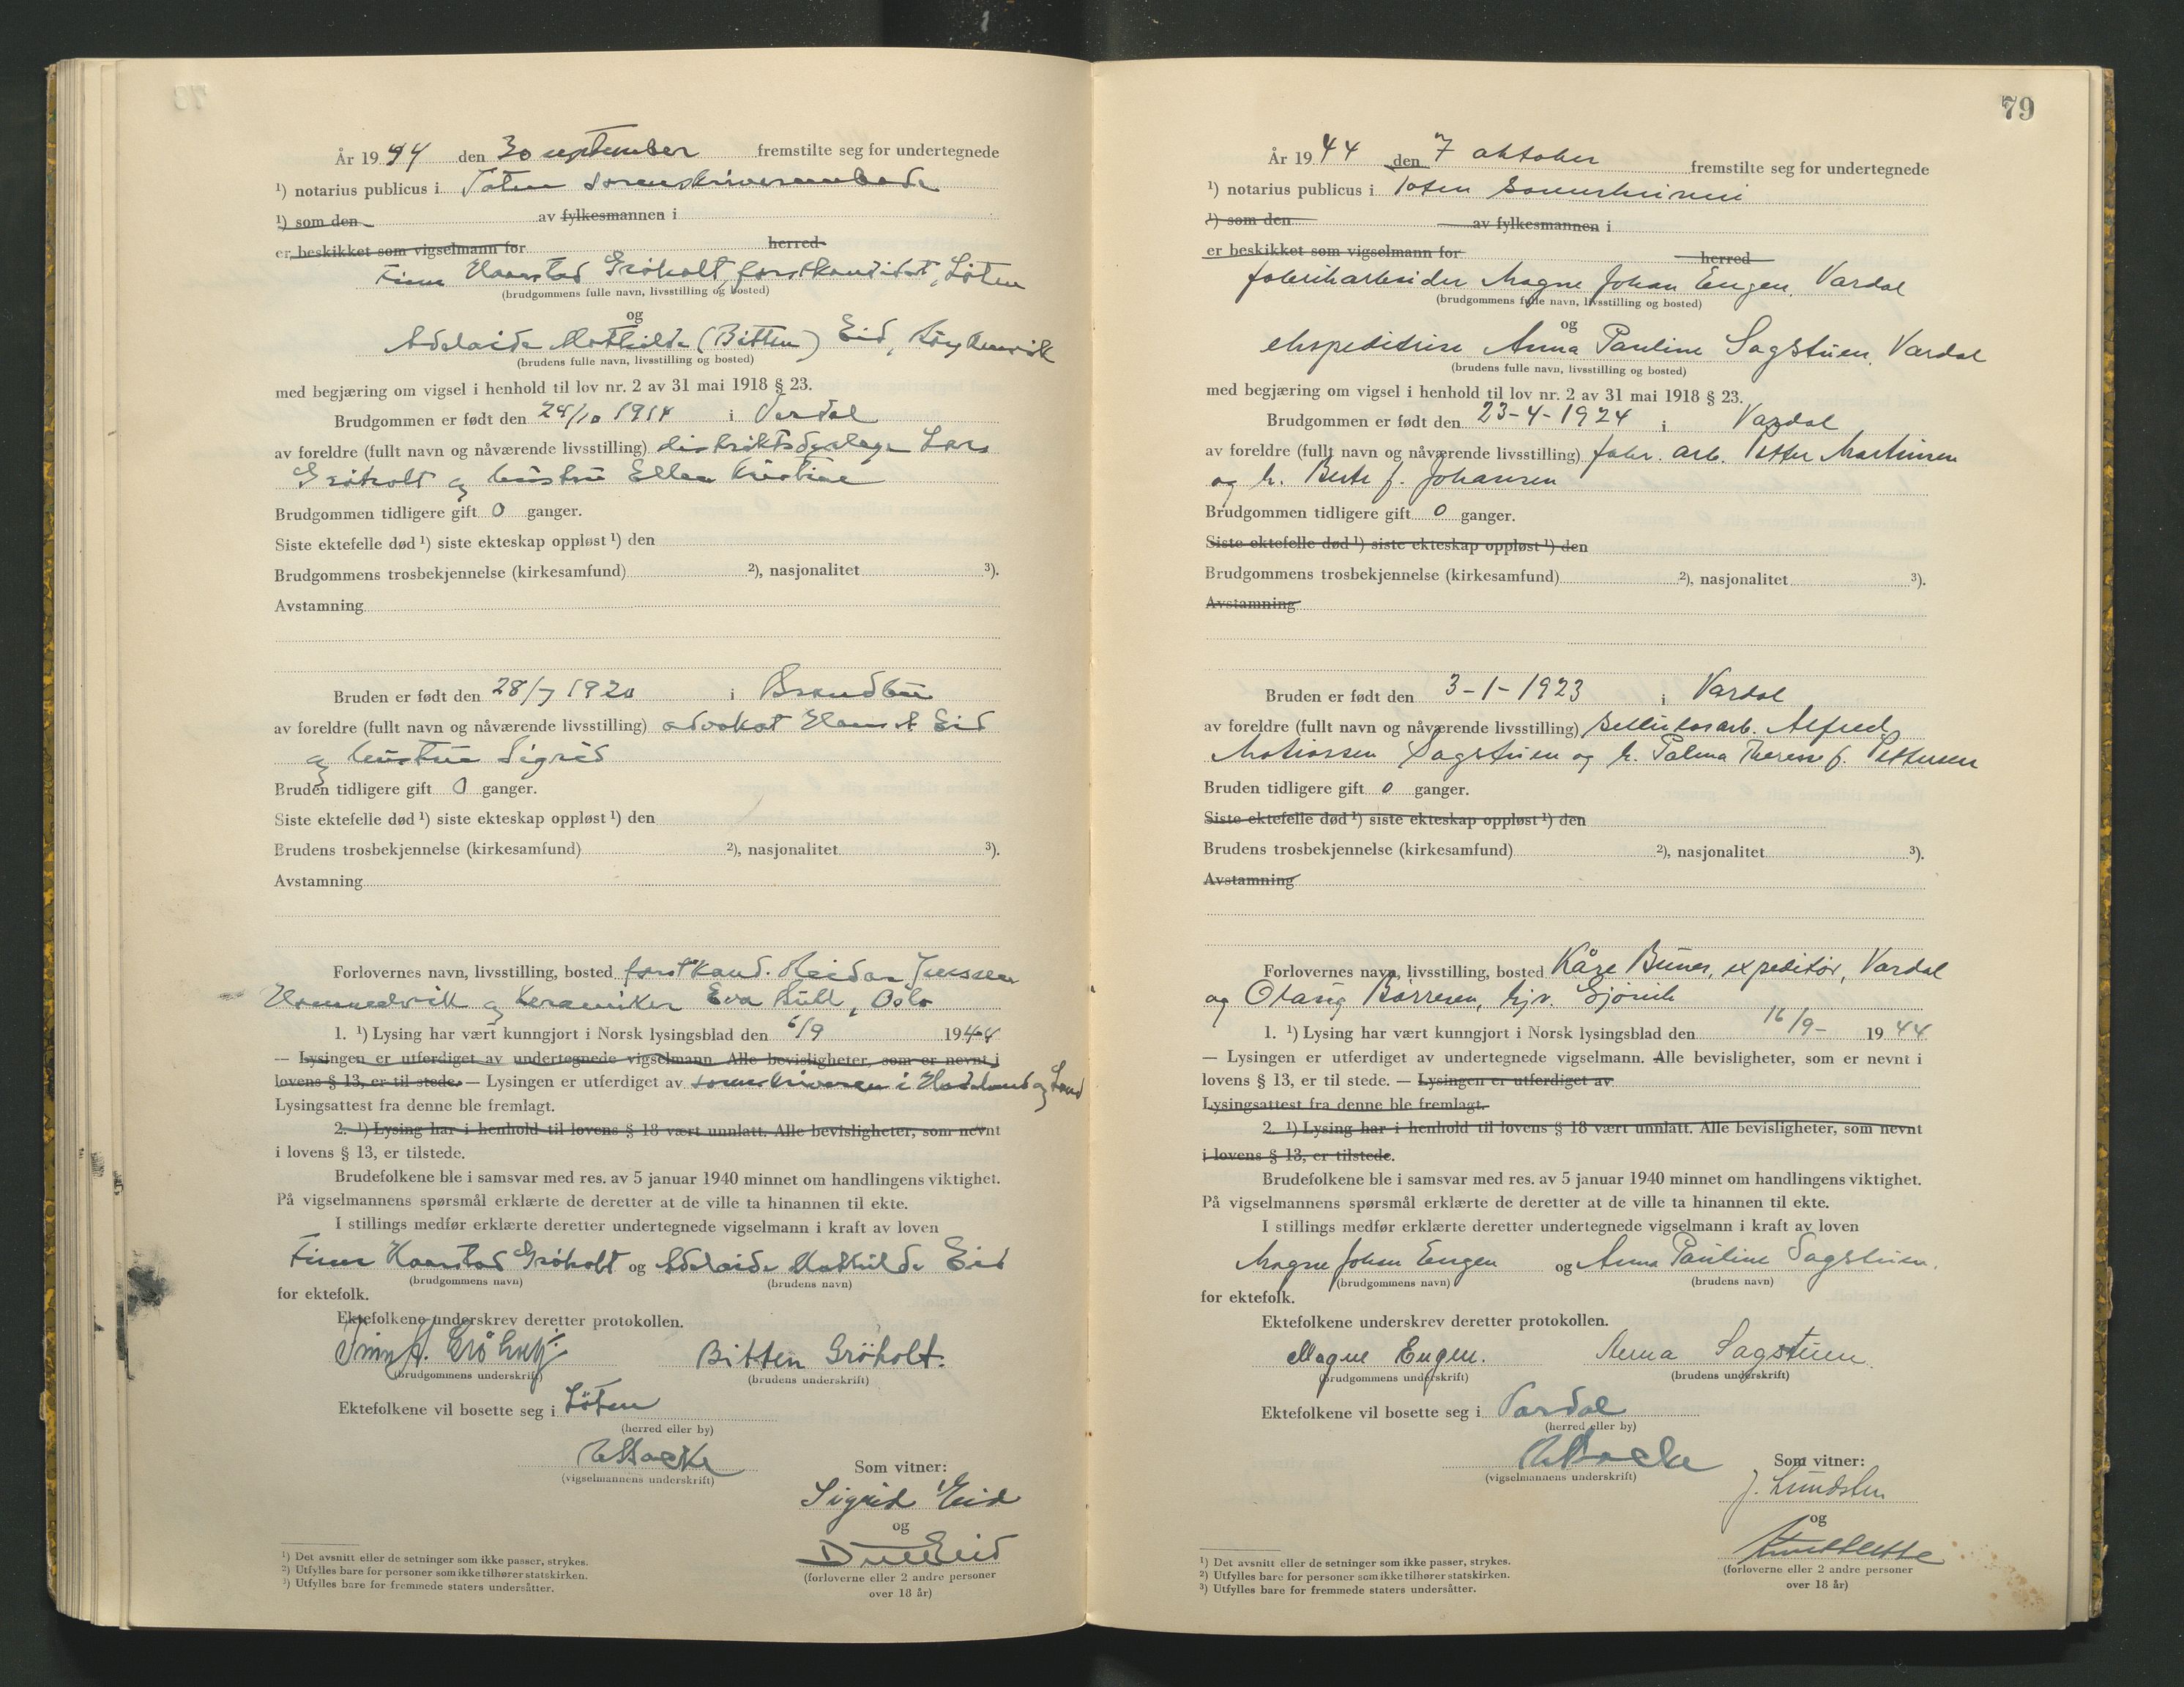 År 1944 den 30 september fremstilte seg for undertegnede
¹) notarius publicus i Toten sorenskriverembede
¹) som den av fylkesmannen i
er beskikket som vigselmann for herred
Finn Haarstad Grøholt, forstkandidat, Løten
(brudgommens fulle navn, livsstilling og bosted)
og
Adelaide Mathilde (Bitten) Eid, Røykenvik
(brudens fulle navn, livsstilling og bosted)
med begjæring om vigsel i henhold til lov nr. 2 av 31 mai 1918 § 23.
Brudgommen er født den /10 1914 i Vardal
av foreldre (fullt navn og nåværende livsstilling) distriktsdyrlege Lars
Grøholt og hustru Ellen Kristine
Brudgommen tidligere gift 0 ganger.
Siste ektefelle død ¹) siste ekteskap oppløst ¹) den
Brudgommens trosbekjennelse (kirkesamfund) ²), nasjonalitet ³).
Avstamning
Bruden er født den 28/7 1920 i Brandbu
av foreldre (fullt navn og nåværende livsstilling) advokat Hans A Eid
og hustru Sigrid
Bruden tidligere gift 0 ganger.
Siste ektefelle død ¹) siste ekteskap oppløst ¹) den
Brudens trosbekjennelse (kirkesamfund) ²), nasjonalitet ³).
Avstamning
Forlovernes navn, livsstilling, bosted forstkand. Reidar Jenssen
og keramiker Eva Buhl, Oslo
1. ¹) Lysing har vært kunngjort i Norsk lysingsblad den 6/9 1944
— Lysingen er utferdiget av undertegnede vigselmann. Alle bevisligheter, som er nevnt i
lovens § 13, er til stede. — Lysingen er utferdiget av sorenskriveren i Hadeland og Land
Lysingsattest fra denne ble fremlagt.
2. ¹) Lysing har i henhold til lovens § 18 vært unnlatt. Alle bevisligheter, som nevnt
i lovens § 13, er tilstede.
Brudefolkene ble i samsvar med res. av 5 januar 1940 minnet om handlingens viktighet.
På vigselmannens spørsmål erklærte de deretter at de ville ta hinannen til ekte.
I stillings medfør erklærte deretter undertegnede vigselmann i kraft av loven
Finn Haarstad Grøholt og Adelaide Mathilde Eid
(brudgommens navn) (brudens navn)
for ektefolk.
Ektefolkene underskrev deretter protokollen.
Finn H. Grøholt Bitten Grøholt.
(brudgommens underskrift) (brudens underskrift)
Ektefolkene vil bosette seg i Løten
(herred eller by)
(vigselmannens underskrift)
Som vitner:
Sigrid Eid
og
Eid
(forloverne eller 2 andre personer
over 18 år)
¹) Det avsnitt eller de setninger som ikke passer, strykes.
²) Utfylles bare for personer som ikke tilhører statskirken.
³) Utfylles bare for fremmede staters undersåtter.
79
År 1944 den 7 oktober fremstilte seg for undertegnede
¹) notarius publicus i Toten sorenskriveri
¹) som den av fylkesmannen i
er beskikket som vigselmann for herred
fabrikarbeider Magne Johan Engen, Vardal
(brudgommens fulle navn, livsstilling og bosted)
og
ekspeditrise Anna Pauline Sagstuen, Vardal
(brudens fulle navn, livsstilling og bosted)
med begjæring om vigsel i henhold til lov nr. 2 av 31 mai 1918 § 23.
Brudgommen er født den 23-4-1924 i Vardal
av foreldre (fullt navn og nåværende livsstilling) fabr. arb. Petter Martinsen
og h. Berte f. Johansen
Brudgommen tidligere gift 0 ganger.
Siste ektefelle død ¹) siste ekteskap oppløst ¹) den
Brudgommens trosbekjennelse (kirkesamfund) ²), nasjonalitet ³).
Avstamning
Bruden er født den 3-1-1923 i Vardal
av foreldre (fullt navn og nåværende livsstilling) sellulosarb. Alfred
Matiassen Sagstuen og h. Palma Therese f. Pettersen
Bruden tidligere gift 0 ganger.
Siste ektefelle død ¹) siste ekteskap oppløst ¹) den
Brudens trosbekjennelse (kirkesamfund) ²), nasjonalitet ³).
Avstamning
Forlovernes navn, livsstilling, bosted Kåre Bunes, expeditør, Vardal
og Olaug Børresen, hjv. Gjøvik
1. ¹) Lysing har vært kunngjort i Norsk lysingsblad den 16/9- 1944
— Lysingen er utferdiget av undertegnede vigselmann. Alle bevisligheter, som er nevnt i
lovens § 13, er til stede. — Lysingen er utferdiget av
Lysingsattest fra denne ble fremlagt.
2. ¹) Lysing har i henhold til lovens § 18 vært unnlatt. Alle bevisligheter, som nevnt
i lovens § 13, er tilstede.
Brudefolkene ble i samsvar med res. av 5 januar 1940 minnet om handlingens viktighet.
På vigselmannens spørsmål erklærte de deretter at de ville ta hinannen til ekte.
I stillings medfør erklærte deretter undertegnede vigselmann i kraft av loven
Magne Johan Engen og Anna Pauline Sagstuen.
(brudgommens navn) (brudens navn)
for ektefolk.
Ektefolkene underskrev deretter protokollen.
Magne Engen. Anna Sagstuen.
(brudgommens underskrift) (brudens underskrift)
Ektefolkene vil bosette seg i Vardal
(herred eller by)
(vigselmannens underskrift)
Som vitner:
J. Lundsten
og
(forloverne eller 2 andre personer
over 18 år)
¹) Det avsnitt eller de setninger som ikke passer, strykes.
²) Utfylles bare for personer som ikke tilhører statskirken.
³) Utfylles bare for fremmede staters undersåtter.